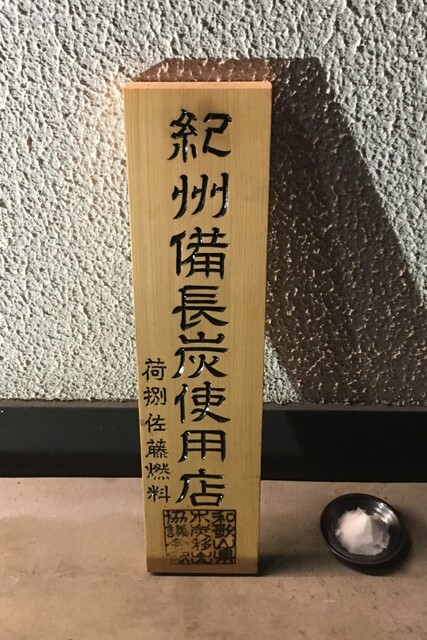 紀州備長炭使用店
荷捌佐藤燃料
和歌山県
木炭移出
協議会